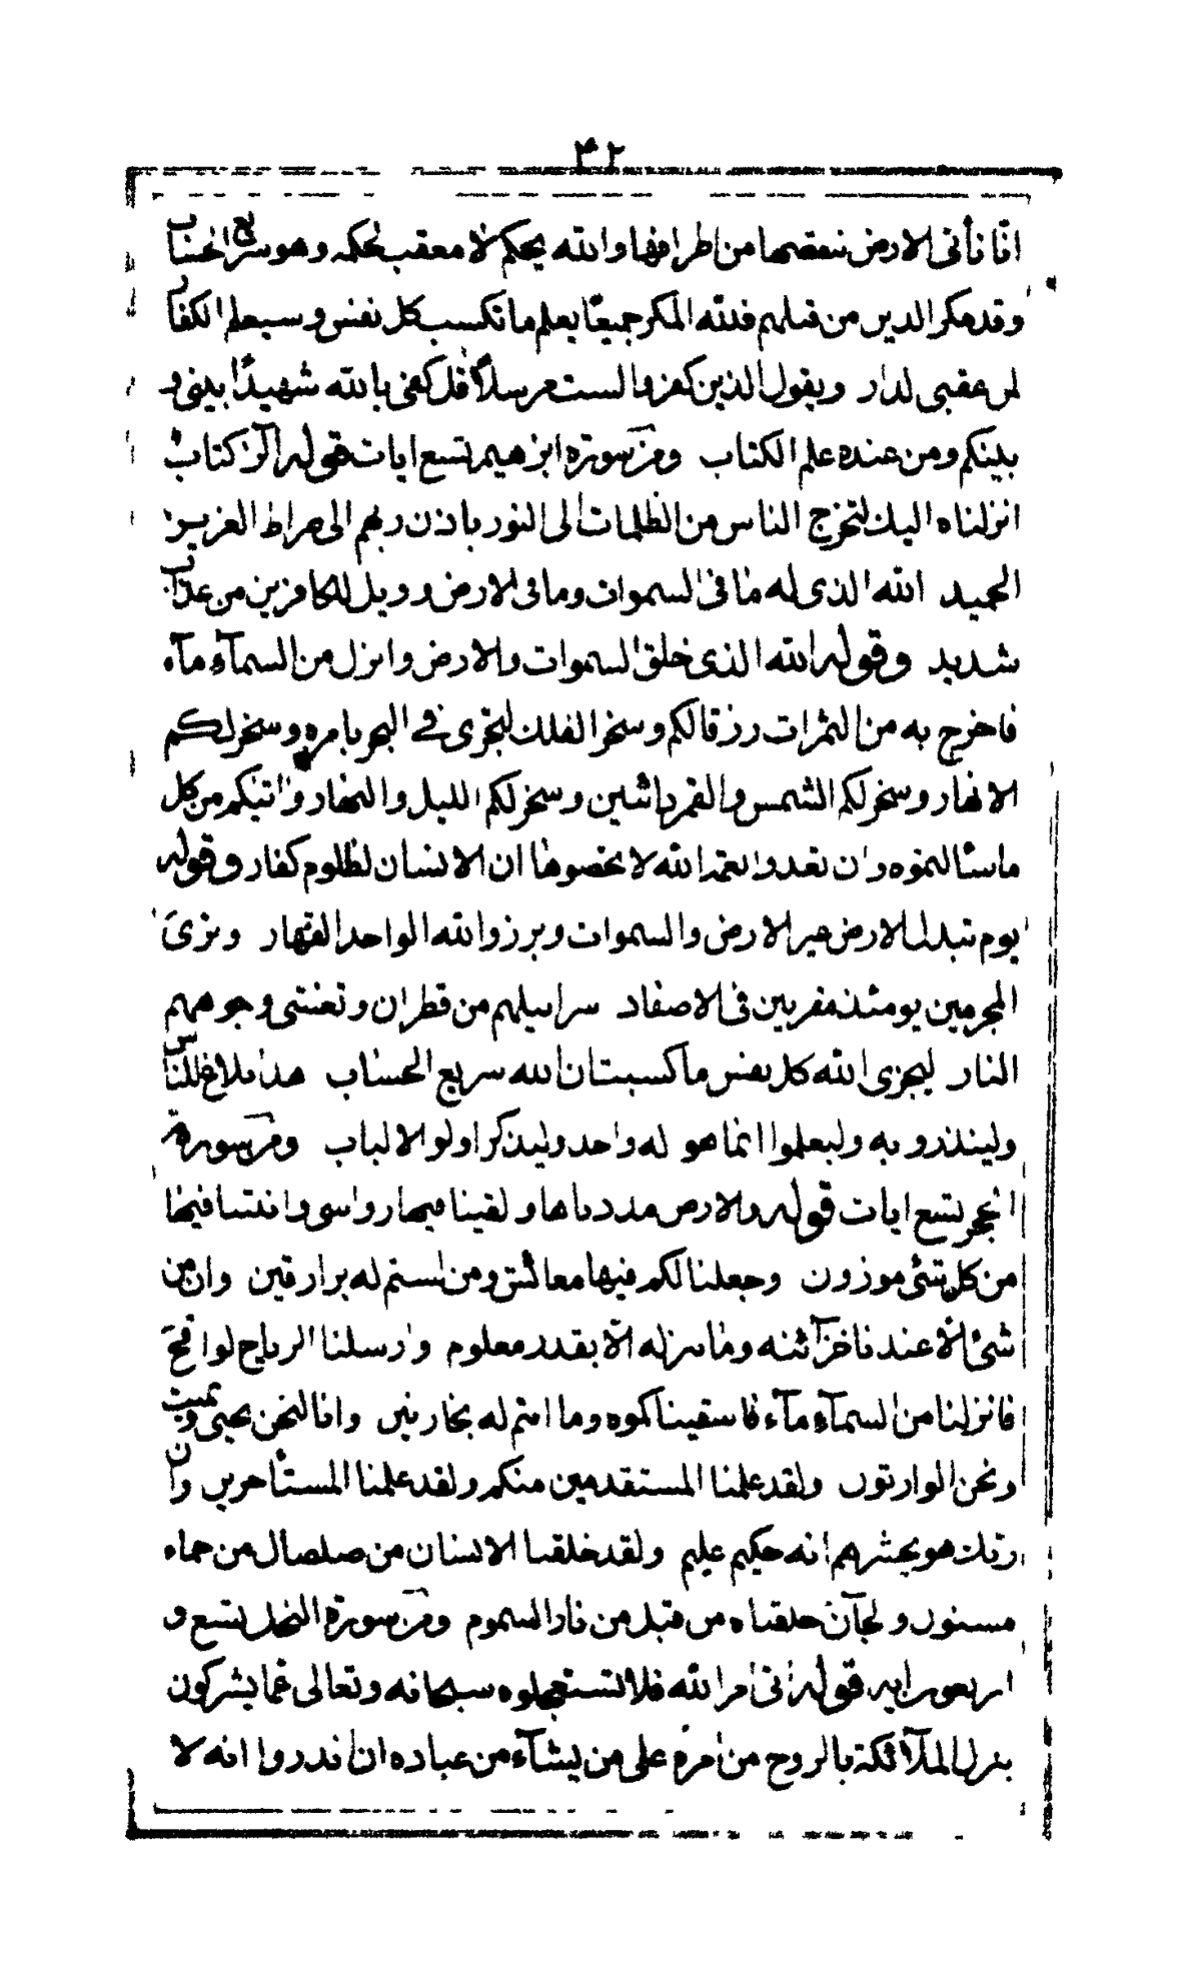 ٣٢
انا نأتى الارض ننقصها من اطرافها والله يحكم لا معقب لحكمه وهو سريع الحساب
وقد مكر الذين من قبلهم فلله المكر جميعًا يعلم ما تكسب كل نفس وسيعلم الكفار
لمن عقبى لدار ويقول الذين كفروا لست مرسلًا قل كفى بالله شهيدًا بينى و
بينكم ومن عنده علم الكتاب ومن سورة ابرهيم تسع ايات قوله الر كتابٌ
انزلناه اليك لتخرج الناس من الظلمات الى النور باذن ربهم الى صراط العزيز
الحميد الله الذى له ما فى السموات وما فى الارض وويل للكافرين من عذاب
شديد وقوله الله الذى خلق السموات والارض وانزل من السمآء مآء
فاخرج به من الثمرات رزقا لكم وسخر الفلك لتجرى فى البحر بامره وسخر لكم
الانهار وسخر لكم الشمس والقمر دائبين وسخر لكم الليل والنهار واتيكم من كل
ما سئالتموه وان تعدوا نعمة الله لا تحصوها ان الانسان لظلوم كفار وقوله
يوم تبدل الارض غير الارض والسموات وبرزوا لله الواحد القهار وترى
المجرمين يومئذ مقرنين فى الاصفاد سرابيلهم من قطران وتغشى وجوههم
النار ليجزى الله كل نفس ما كسبت ان الله سريع الحساب هذا بلاغ للناس
ولينذروبه وليعلموا انما هو له واحد وليذكر اولو الالباب ومن سورة
الحجر تسع ايات قوله والارض مددناها ولقينا فيها رواسى وانبتنا فيها
من كل شئ موزون وجعلنا لكم فيها معائش ومن لستم له برازقين وان من
شئ الا عندنا خزآئنه وما ننزله الّا بقدر معلوم وارسلنا الرياح لواقح
فانزلنا من السمآء مآء فاسقيناكموه وما انتم له بخازنين وانا لنحن نحيى ونميت
ونحن الوارثون ولقد علمنا المستقدمين منكم ولقد علمنا المستأخرين وان
ربك هو يحشرهم انه حكيم عليم ولقد خلقنا الانسان من صلصال من حماء
مسنون ولجآن خلقناه من قبل من نار السموم ومن سورة النحل تسع و
اربعون ايه قوله اتى امر الله فلا تستعجلوه سبحانه وتعالى عما يشركون
ينزل الملآئكة بالروح من امره على من يشآء من عباده ان انذروا انه لا